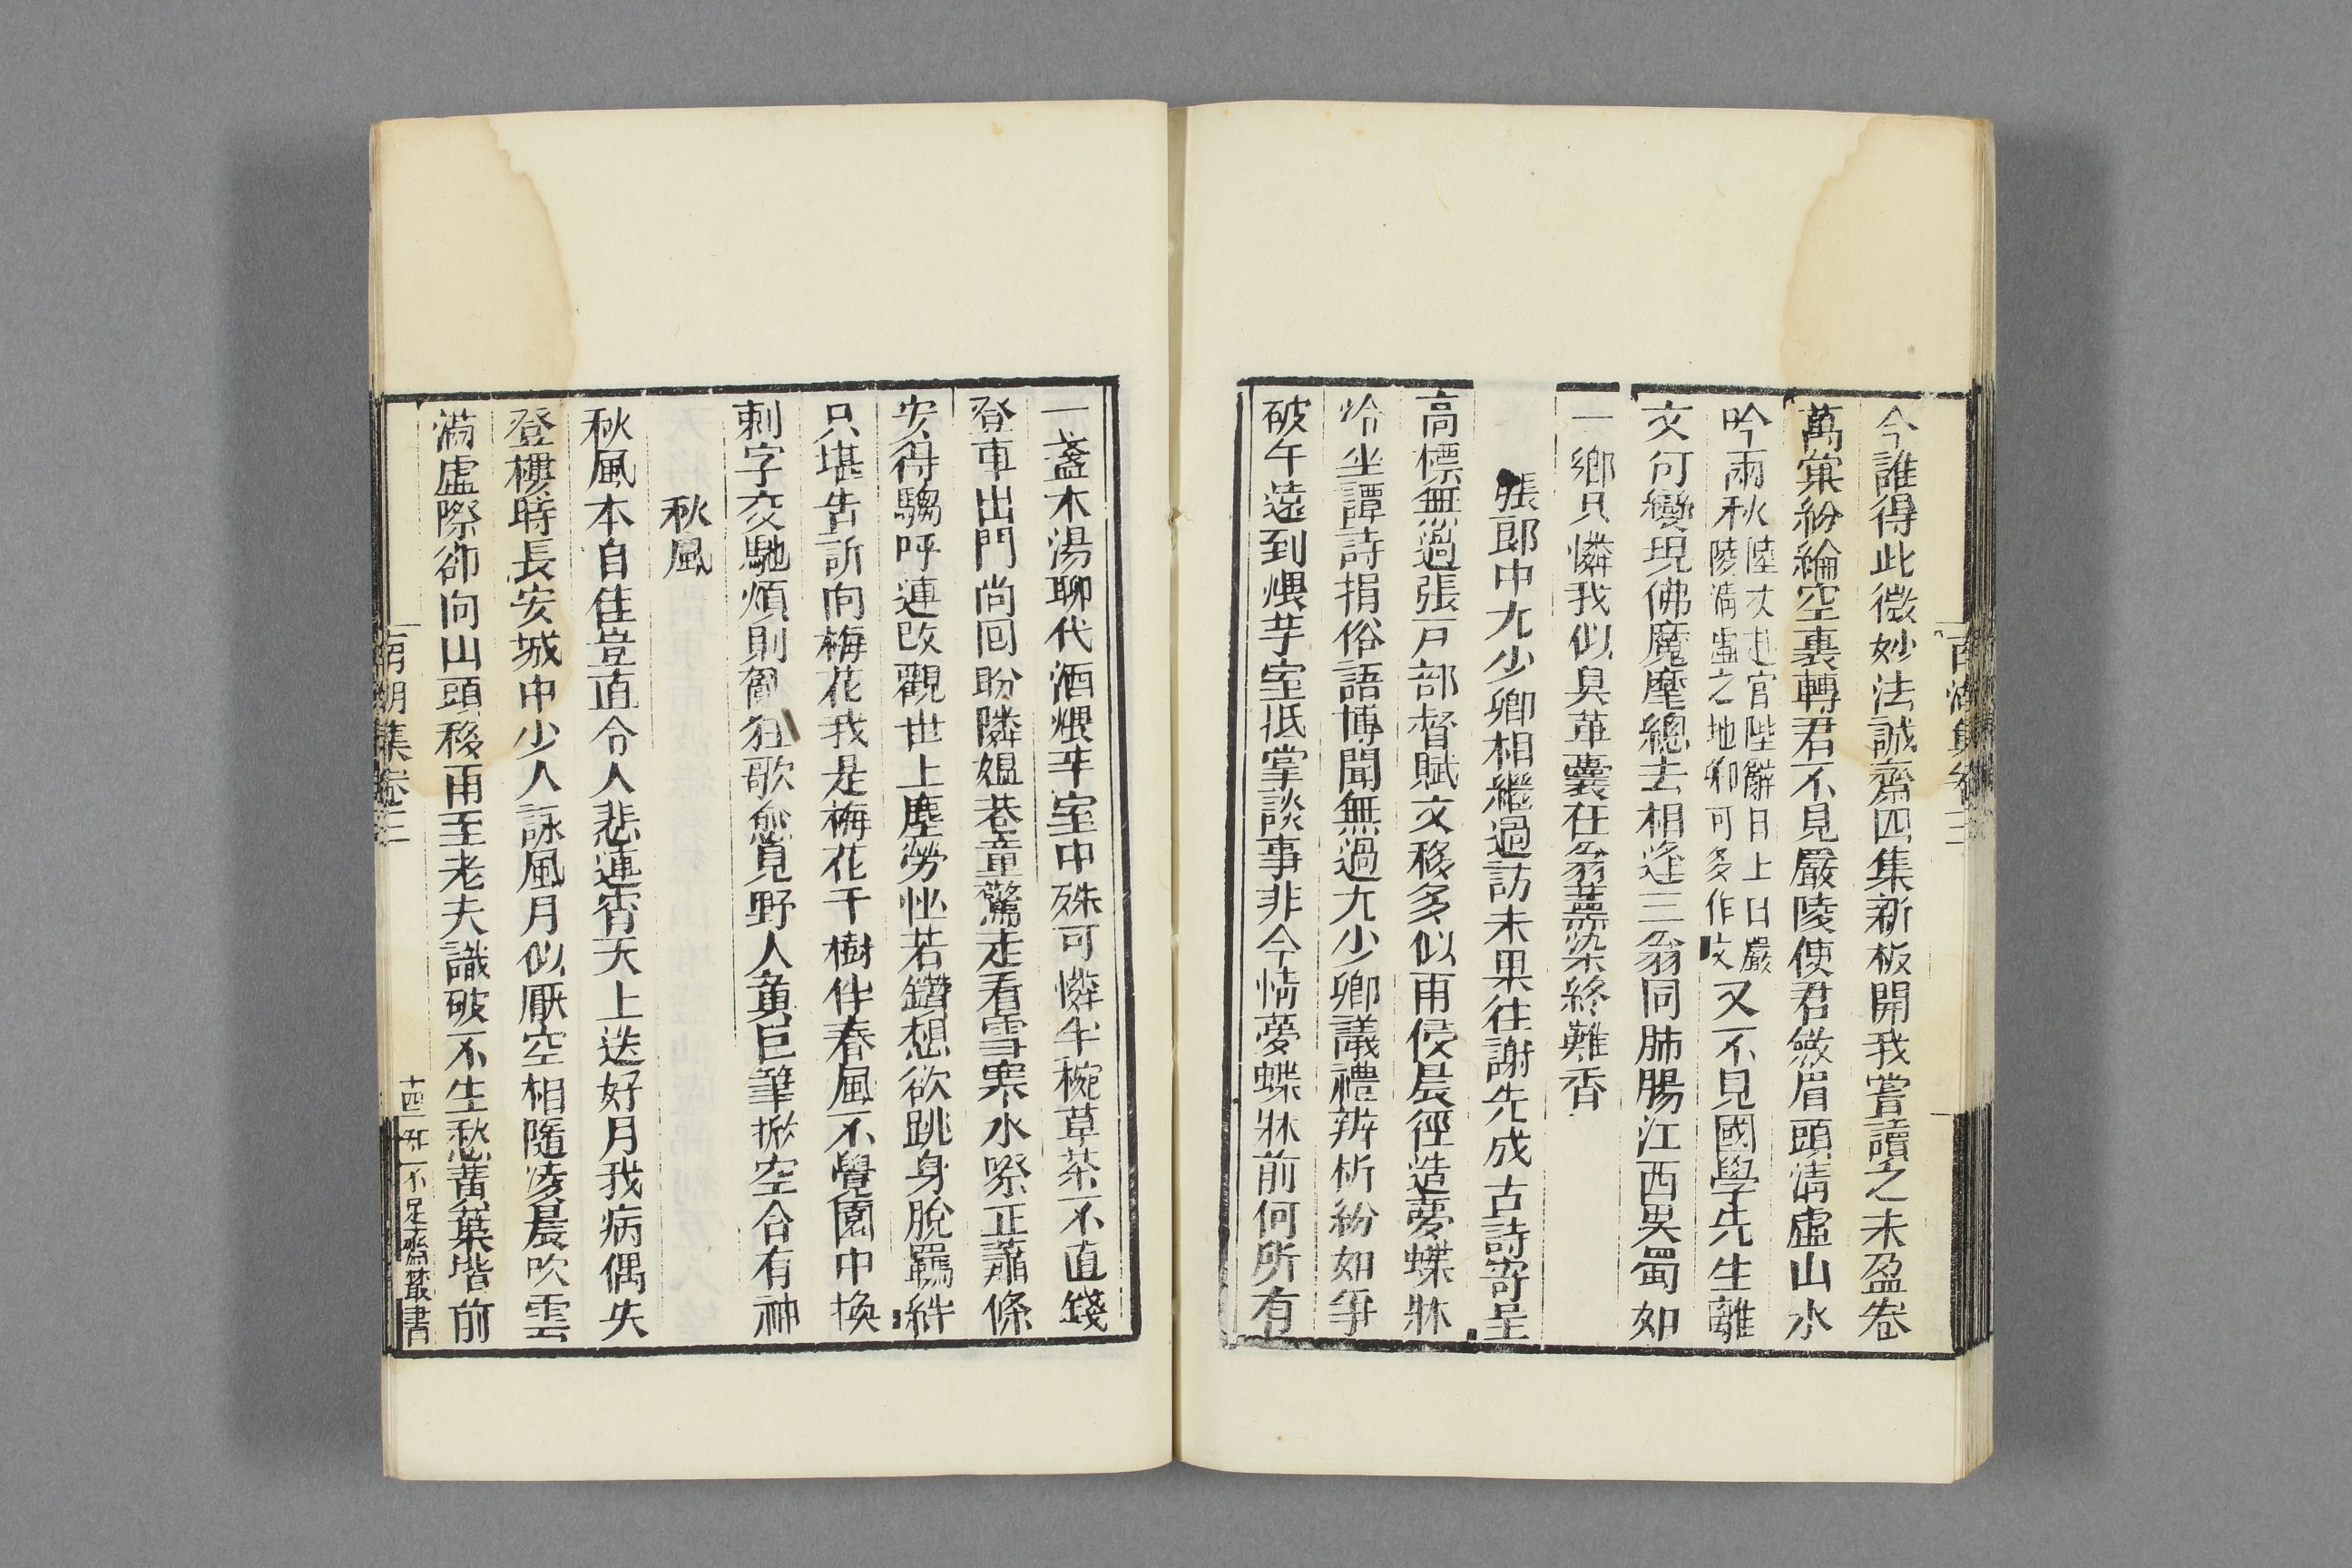 今誰得此微妙法誠齋四集新板開我嘗讀之未盈卷
萬彙紛綸空裏轉君不見嚴陵使君斂眉頭清虛山水
吟雨秋陸丈赴官陛辭日上曰嚴陵清虛之地卿可多作文又不見國學先生離
文何變現佛魔麾總去相逢三翁同肺腸江西吳蜀如
一鄉只憐我似臭革囊在翁薰染終難香
張郎中尤少卿相繼過訪未果往謝先成古詩寄呈
高標無過張戸部督賦文移多似雨侵晨徑造夢蝶牀
怜坐譚詩捐俗語博聞無過尤少卿議禮辨析紛如爭
破午遠到煨芋室抵掌談事非今情夢蝶牀前何所有
一盞木湯聊代酒煨芋室中殊可憐半椀草茶不直錢
登車出門尚回盼隣媼巷童驚走看雪寒水際正蕭條
安得騶呼連改觀世上塵勞怭若鑽想欲跳身脫羈絆
只堪告訴向梅花我是梅花千樹伴春風不覺園中換
刺字交馳煩則竄狂歌愈見野人真巨筆掀空合有神
秋風
秋風本自佳豈直令人悲連宵天上送好月我病偶失
登樓時長安城中少人詠風月似厭空相隨凌晨吹雲
滿虛際卻向山頭移雨至老夫識破不生愁蕭葉堦前
南湖集卷三
十四 知不足齋叢書